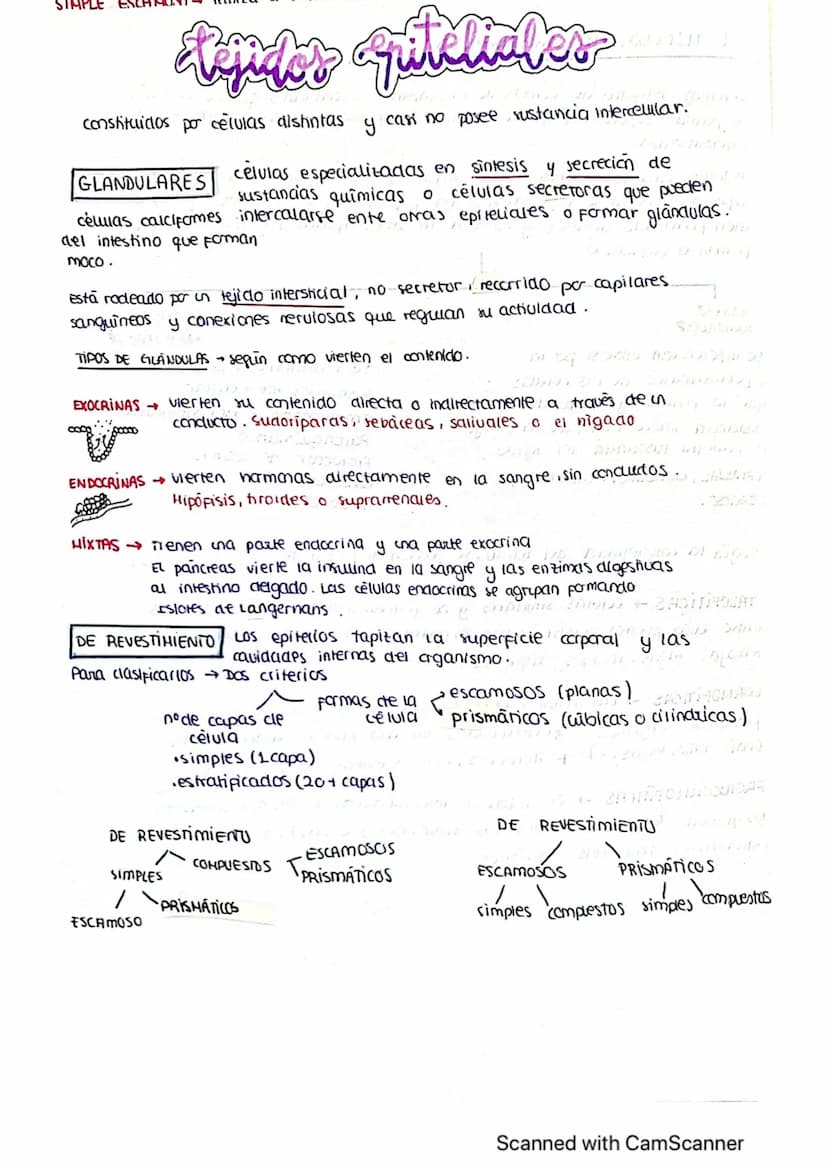 SIMPLE
tejidos epiteliales
constituidos por células distintas y casi no posee sustancia intercelular.
GLANDULARES
células especializadas en síntesis y secreción de
sustancias químicas o células secretoras que pueden
células calciformes intercalarse entre otras epiteliales o formar glándulas.
del intestino que forman
moco.
Está rodeado por un tejido intersticial, no secretor, recorrido por capilares
sanguíneos y conexiones nerviosas que regulan su actividad.
TIPOS DE GLÁNDULAS → según como vierten el contenido.
EXOCRINAS → vierten su contenido directa o indirectamente a través de un
conducto. Sudoríparas, sebáceas, salivales o el hígado
ENDOCRINAS → vierten hormonas directamente en la sangre, sin conductos.
Hipófisis, tiroides o suprarrenales.
MIXTAS → Tienen una parte endocrina y una parte exocrina
EL páncreas vierte la insulina en la sangre y las enzimas digestivas
al intestino delgado. Las células endocrinas se agrupan formando
Islotes de Langermans.
DE REVESTIMIENTO Los epitelios tapitan la superficie corporal y las
cavidades internas del organismo.
Para clasificarlos → Dos criterios
formas de la célula
escamosos (planas)
prismáticos (cúbicas o cilíndricas)
nº de capas de
célula
•simples (1 capa)
•estratificados (2 o + capas)
DE REVESTIMIENTO
SIMPLES
COMPUESTOS
ESCAMOSOS
PRISMÁTICOS
ESCAMOSO
PRISMÁTICOS
DE REVESTIMIENTO
ESCAMOSOS
PRISMÁTICOS
simples compuestos simples compuestos
Scanned with CamScanner